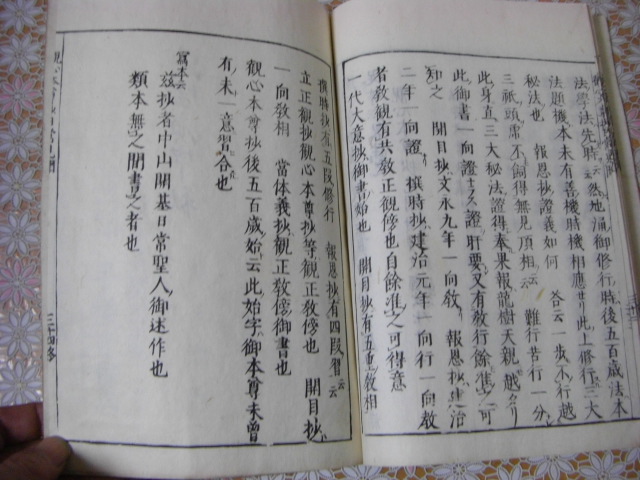 法學法先時云云然地涌御修行時後五百歳法本
法題機本未有善機時機相應せり此上修行三大
秘法也　報恩抄證義如何　答云一歩不行越
三祇頭席不飼得無見頂相云云　難行苦行一分
此身直三大秘法證得奉果報龍樹天親越
此御書一向證證肝要又有教行餘準之可
知之　開目抄文永九年一向教　報恩抄建治
二年一向證　撰時抄建治元年一向行一向教
者教觀有共教正觀傍也自餘準之可得意
一代大意抄御書始也　開目抄有五重教相
撰時抄有五段修行　報恩抄有四段習云云
立正觀抄觀心本尊抄等觀正教傍也　開目抄
一向教相　當体義抄觀正教傍御書也
觀心本尊抄後五百歳始云云此始字御本尊未曾
有未一意習合也
寫本云
茲抄者中山開基日常聖人御述作也
類本無之聞書之者也
三十四終